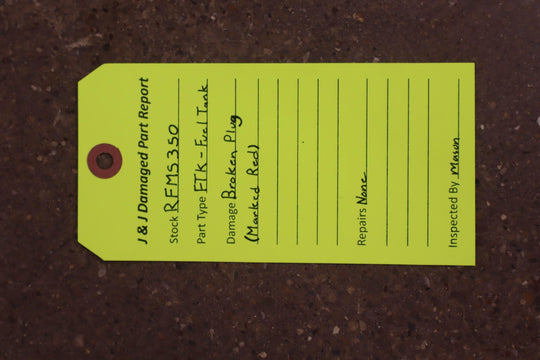 J & J Damaged Part Report
Stock RFMS350
Part Type FTK - Fuel Tank
Damage Broken Plug
(Marked Red)
Repairs None
Inspected By Mason